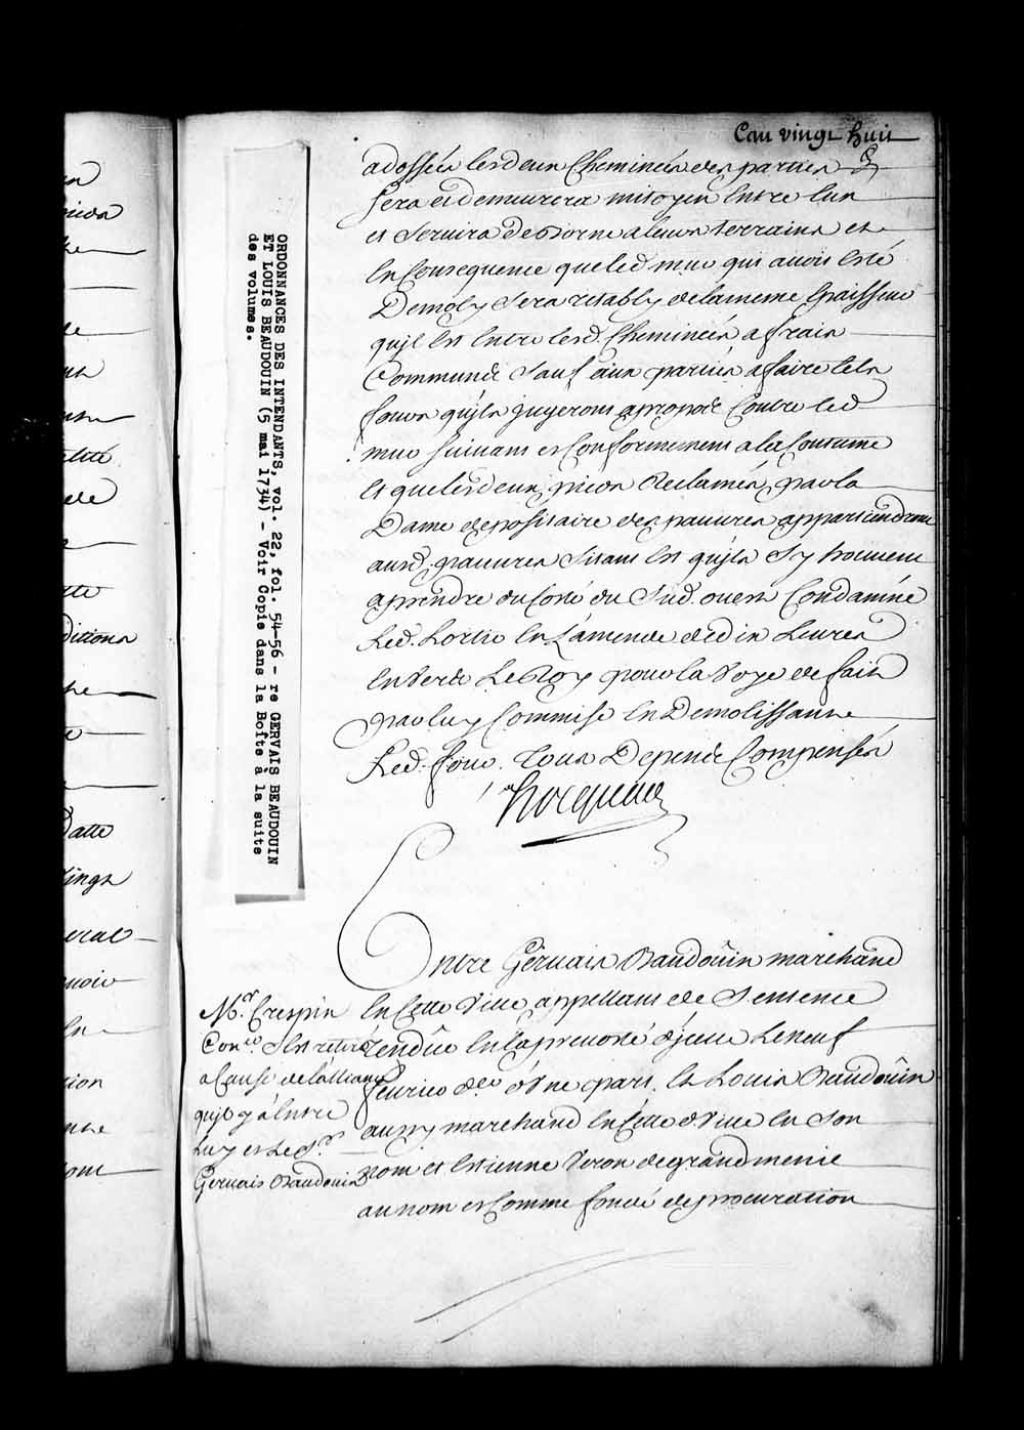 Cen vingt huit
adossées lesd deux Cheminées des parties
sera et demeurera mitoyen Entre Eux
et servira de Borne a leurs terrains et
En Consequence que led mur qui avoit Esté
Demoly sera retably de la meme Epaisseur
qu'il Est Entre lesd. Cheminées a frais
Communs sauf aux parties a faire tels
fours qu'ils jugerons apropos Contre led
mur suivant et Conformement a la Coutume
Et que lesd deux pieux Reclamés par la
Dame depositaire des pauvres appartiendront
ausd. pauvres Sitant Est qu'ils s'y trouvent
aprendre du Costé du Sud. ouest Condamne
Led. Lortie En L'amende de dix Livres
Envers Le Roy pour la Voye de fait
par luy Commise En Demolissant
Led. four. Tous Depens Compensés
hocquart
Entre Gervais Baudoüin marchand
En Cette Ville appellant de Sentence
rendüe En la prevosté d'jcelle Le neuf
fevrier der. d'Une part, Et Louis Baudoüin
aussy marchand En Cette d. Ville En Son
nom et Estienne Veron de grandmenil
au nom et Comme fondé de procuration
Mr. Crespin
Coner. S'est retiré
a Cause de l'alliance
qu'il y a Entre
Luy et Le Sr.
Gervais Baudouin
ORDONNANCES DES INTENDANTS, vol. 22, fol. 54-56 - re GERVAIS BEAUDOUIN
ET LOUIS BEAUDOUIN (5 mai 1734) - Voir Copie dans la Boîte à la suite
des volumes.